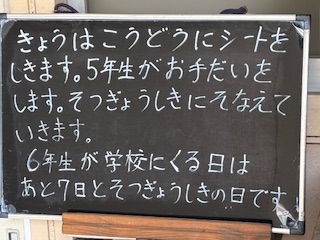 きょうはこうどうにシートを
しきます。5年生がお手だいを
します。そつぎょうしきにそなえて
いきます。
6年生が学校にくる日は
あと7日とそつぎょうしきの日です